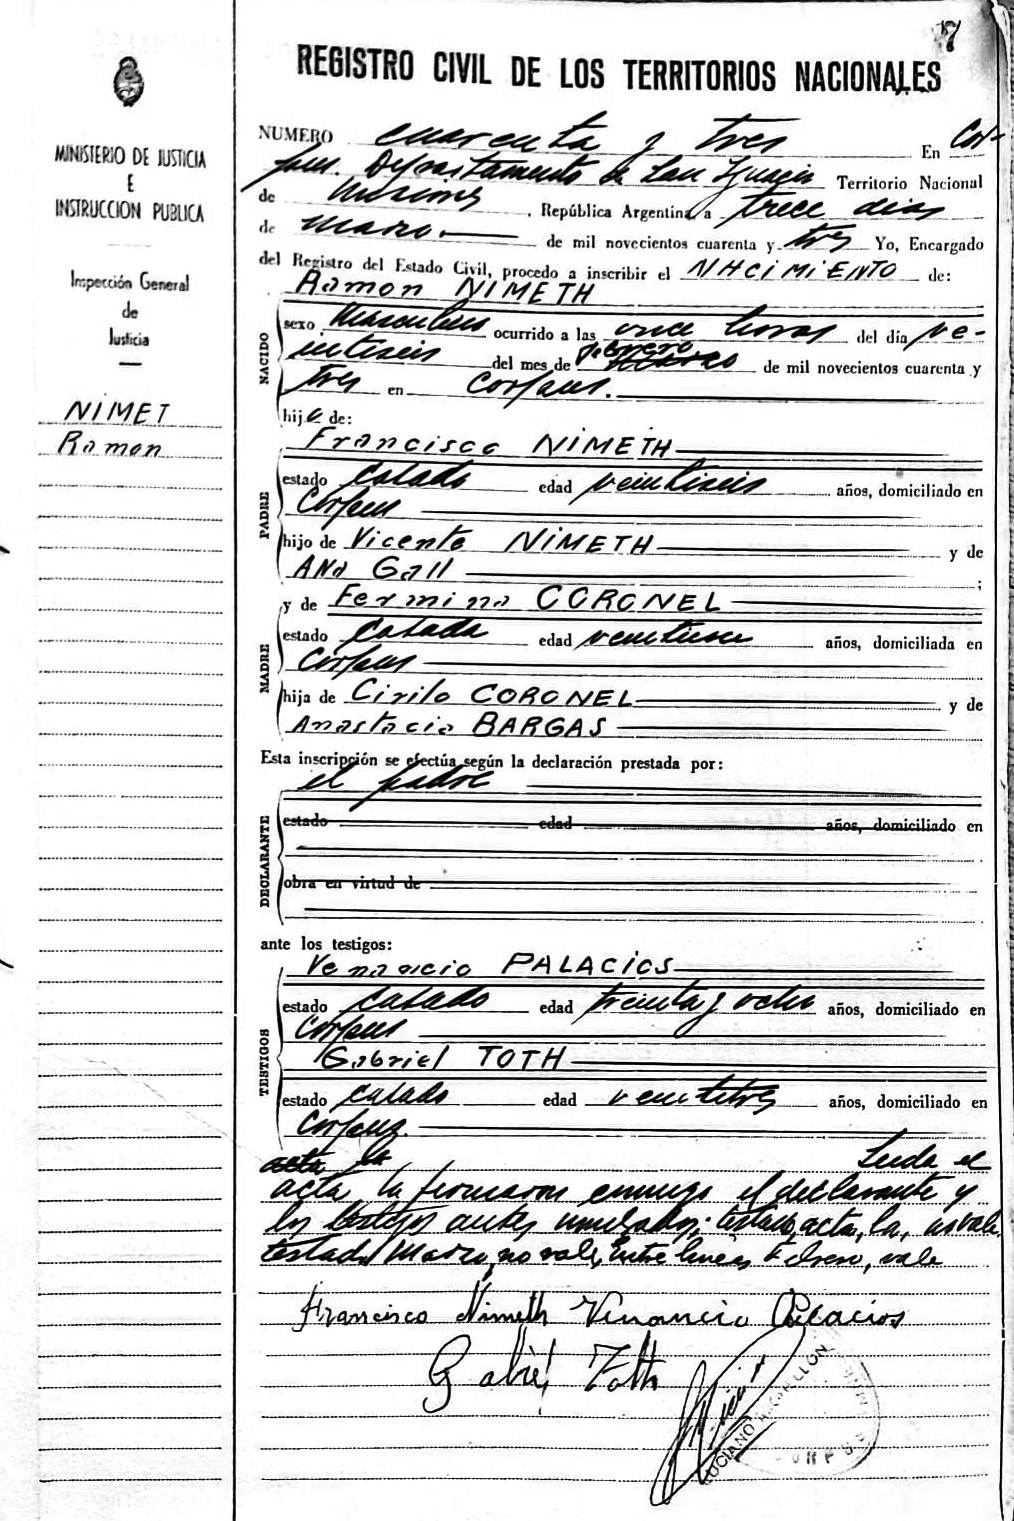 7
REGISTRO CIVIL DE LOS TERRITORIOS NACIONALES
MINISTERIO DE JUSTICIA
E
INSTRUCCION PUBLICA
Inspección General
de
Justicia
NIMET
Ramon
NUMERO cuarenta y tres En Cor-
pus. Departamento de San Ignacio Territorio Nacional
de Misiones, República Argentina, a trece dias
de marzo. de mil novecientos cuarenta y tres Yo, Encargado
del Registro del Estado Civil, procedo a inscribir el NACIMIENTO de:
Ramon NIMETH
NACIDO
sexo masculino ocurrido a las once horas del día ve-
febrero
intiseis del mes de marzo de mil novecientos cuarenta y
tres en Corpus.
hijo de:
Francisco NIMETH
PADRE
estado casado edad veintiseis años, domiciliado en
Corpus
hijo de Vicente NIMETH y de
ANA Gall ;
y de Fermina CORONEL
MADRE
estado casada edad años, domiciliada en
Corpus
hija de Cirilo CORONEL y de
Anastacia BARGAS
Esta inscripción se efectúa según la declaración prestada por:
el padre
DECLARANTE
estado edad años, domiciliado en
obra en virtud de
ante los testigos:
Venancio PALACIOS
TESTIGOS
estado casado edad treinta y ocho años, domiciliado en
Corpus
Gabriel TOTH
estado casado edad veintitres años, domiciliado en
Corpus.
acta la Leida el
acta, la firmaron conmigo el declarante y
los testigos antes nombrados; testado, acta, la, no vale,
testado Marzo, no vale, entre lineas Febrero, vale
Francisco Nimeth Venancio Palacios
Gabriel Toth
LUCIANO
CORPUS